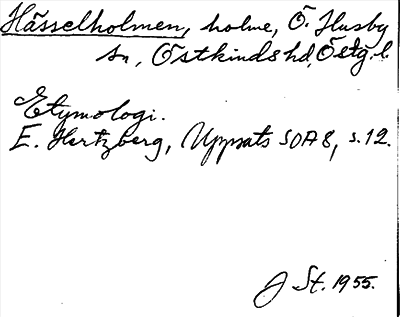 Hässelholmen, holme, Ö. Husby
sn, Östkinds hd, Östg. l.
Etymologi.
E. Hertzberg, Uppsats SOÄ 8, s. 12.
J St. 1955.